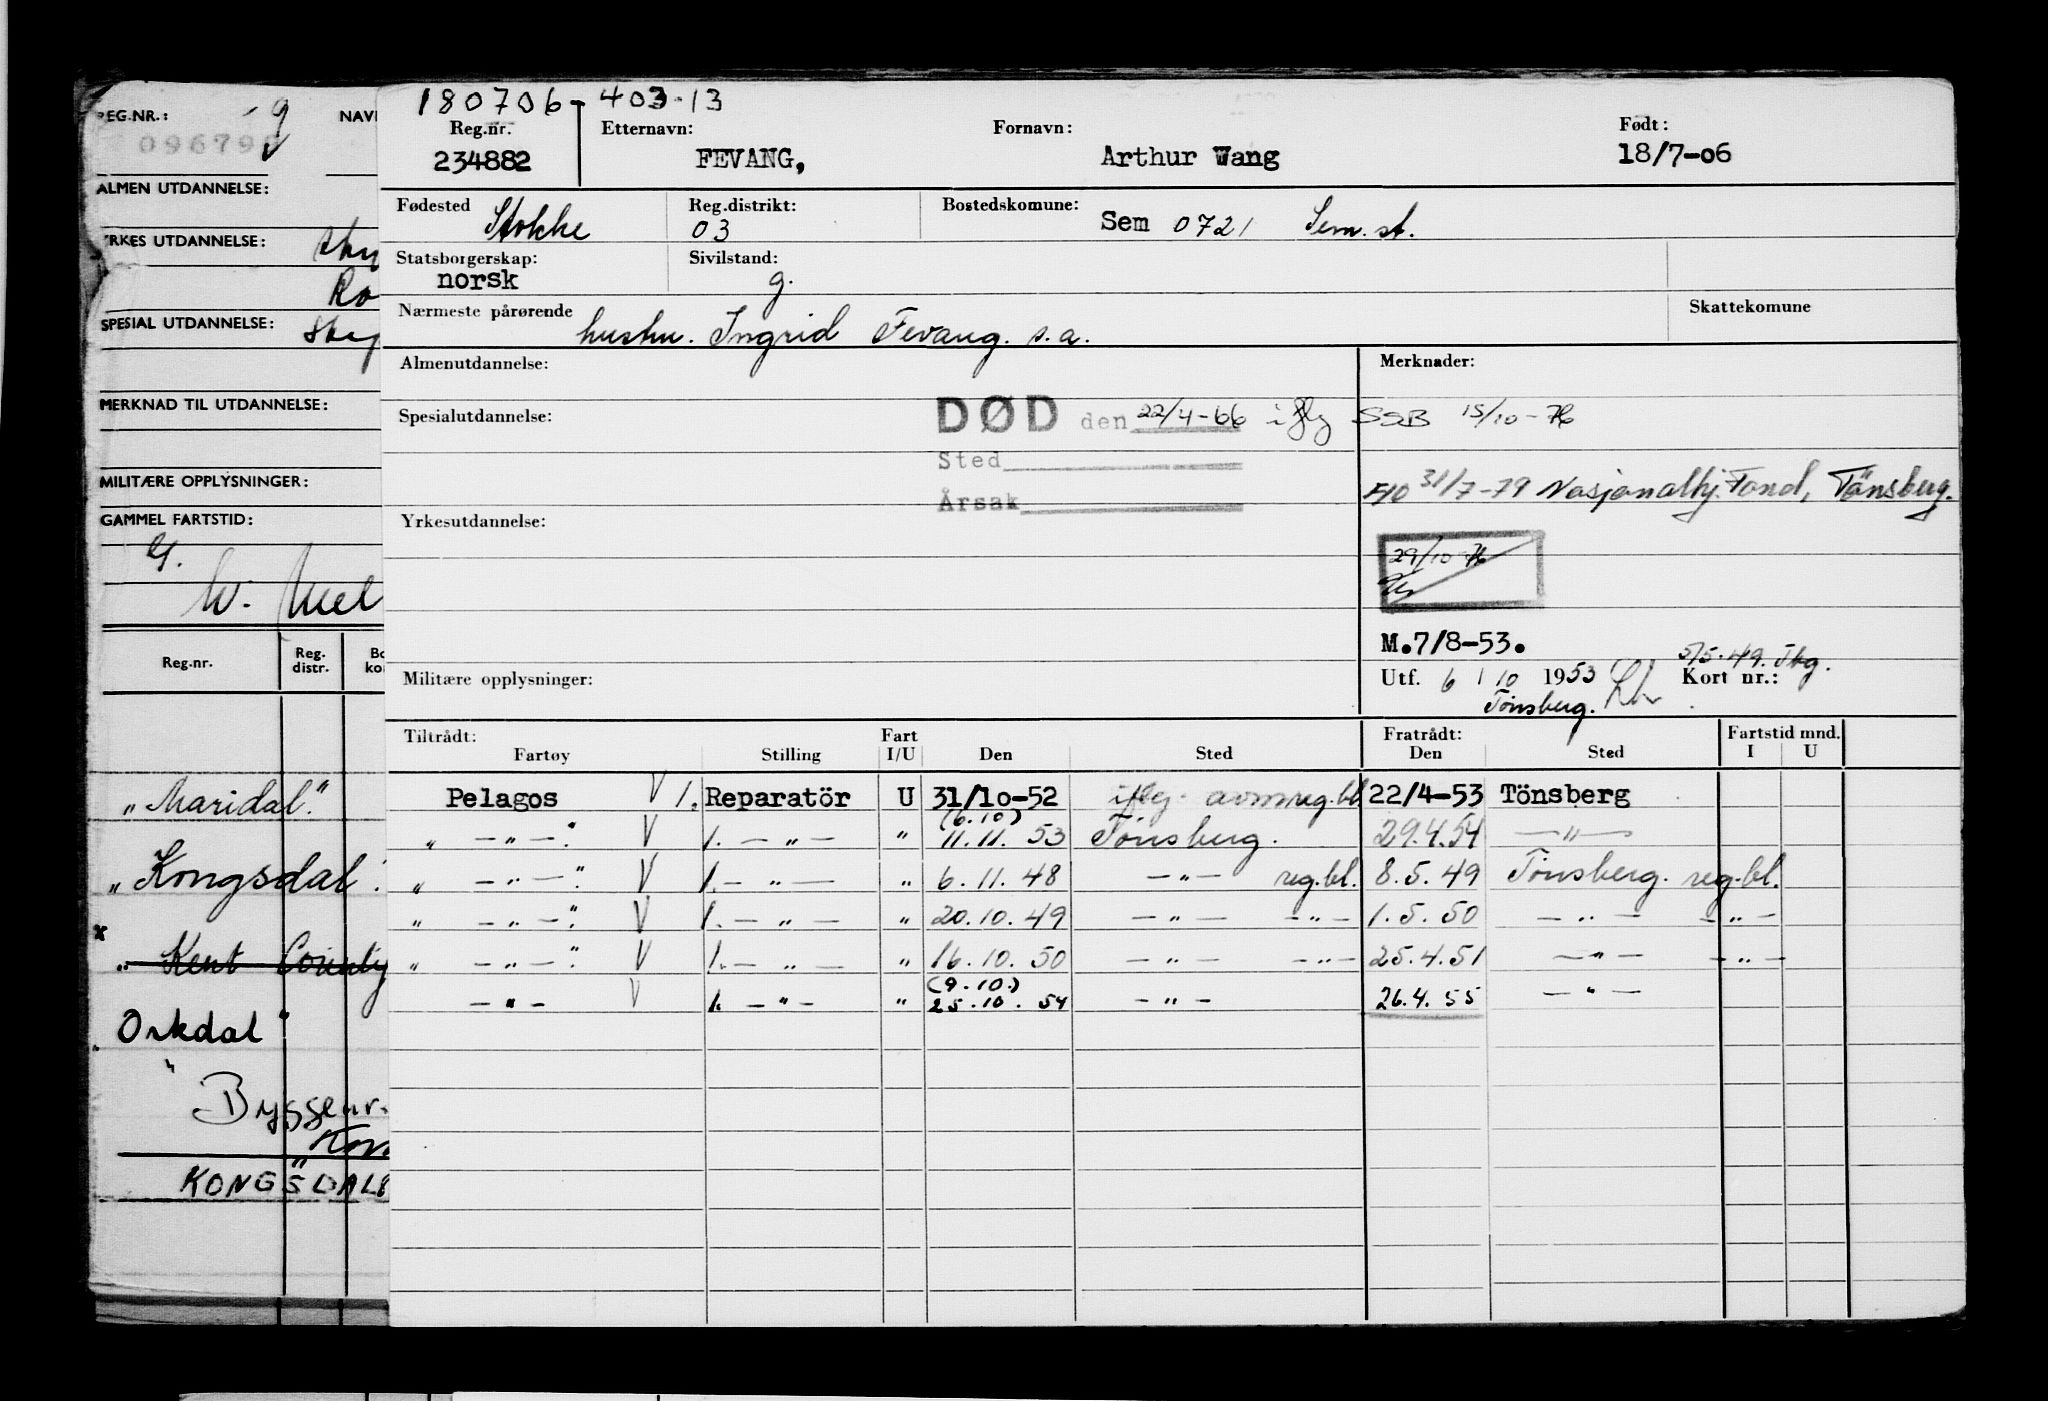 REG.NR.: 9 NAV
09679
ALMEN UTDANNELSE:
YRKES UTDANNELSE:
SPESIAL UTDANNELSE:
MERKNAD TIL UTDANNELSE:
MILITÆRE OPPLYSNINGER:
GAMMEL FARTSTID:
Reg.nr. Reg. distr.
"Maridal"
"Kongsdal"
"Kent County
Orkdal"
Byggenr.
KONGSDAL
180706-403-13
Reg.nr. Etternavn: Fornavn: Født:
234882 FEVANG, Arthur Wang 18/7-06
Fødested Stokke Reg.distrikt: 03 Bostedskomune: Sem 0721 Sem. st.
Statsborgerskap: norsk Sivilstand: g.
Nærmeste pårørende hustru. Ingrid Fevang. s.a. Skattekomune
Almenutdannelse: Merknader:
Spesialutdannelse: DØD den 22/4-66 iflg SSB 15/10-76
Sted
Årsak
F/O 31/7-79 Nasjonalhj. Fond, Tönsberg.
Yrkesutdannelse:
29/10-76
M.7/8-53.
Militære opplysninger: Utf. 6/10 1953 Kort nr.: 5/5-49. Tbg.
Tönsberg.
Tiltrådt: Fart Fratrådt: Fartstid mnd.
Fartøy Stilling I/U Den Sted Den Sted I U
Pelagos V 1. Reparatör U 31/10-52 iflg. avmreg.bl. 22/4-53 Tönsberg
" — " — " V 1. — " — " (6.10) 11.11.53 Tönsberg. 29.4.54 — " —
" — " — " V 1. — " — " 6.11.48 — " — reg.bl. 8.5.49 Tönsberg. reg.bl.
" — " — " V 1. — " — " 20.10.49 — " — — " — 1.5.50 — " — — " —
" — " — " V 1. — " — " 16.10.50 — " — — " — 25.4.51 — " — — " —
— " — V 1. — " — " (9.10.) 25.10.54 — " — 26.4.55 — " —